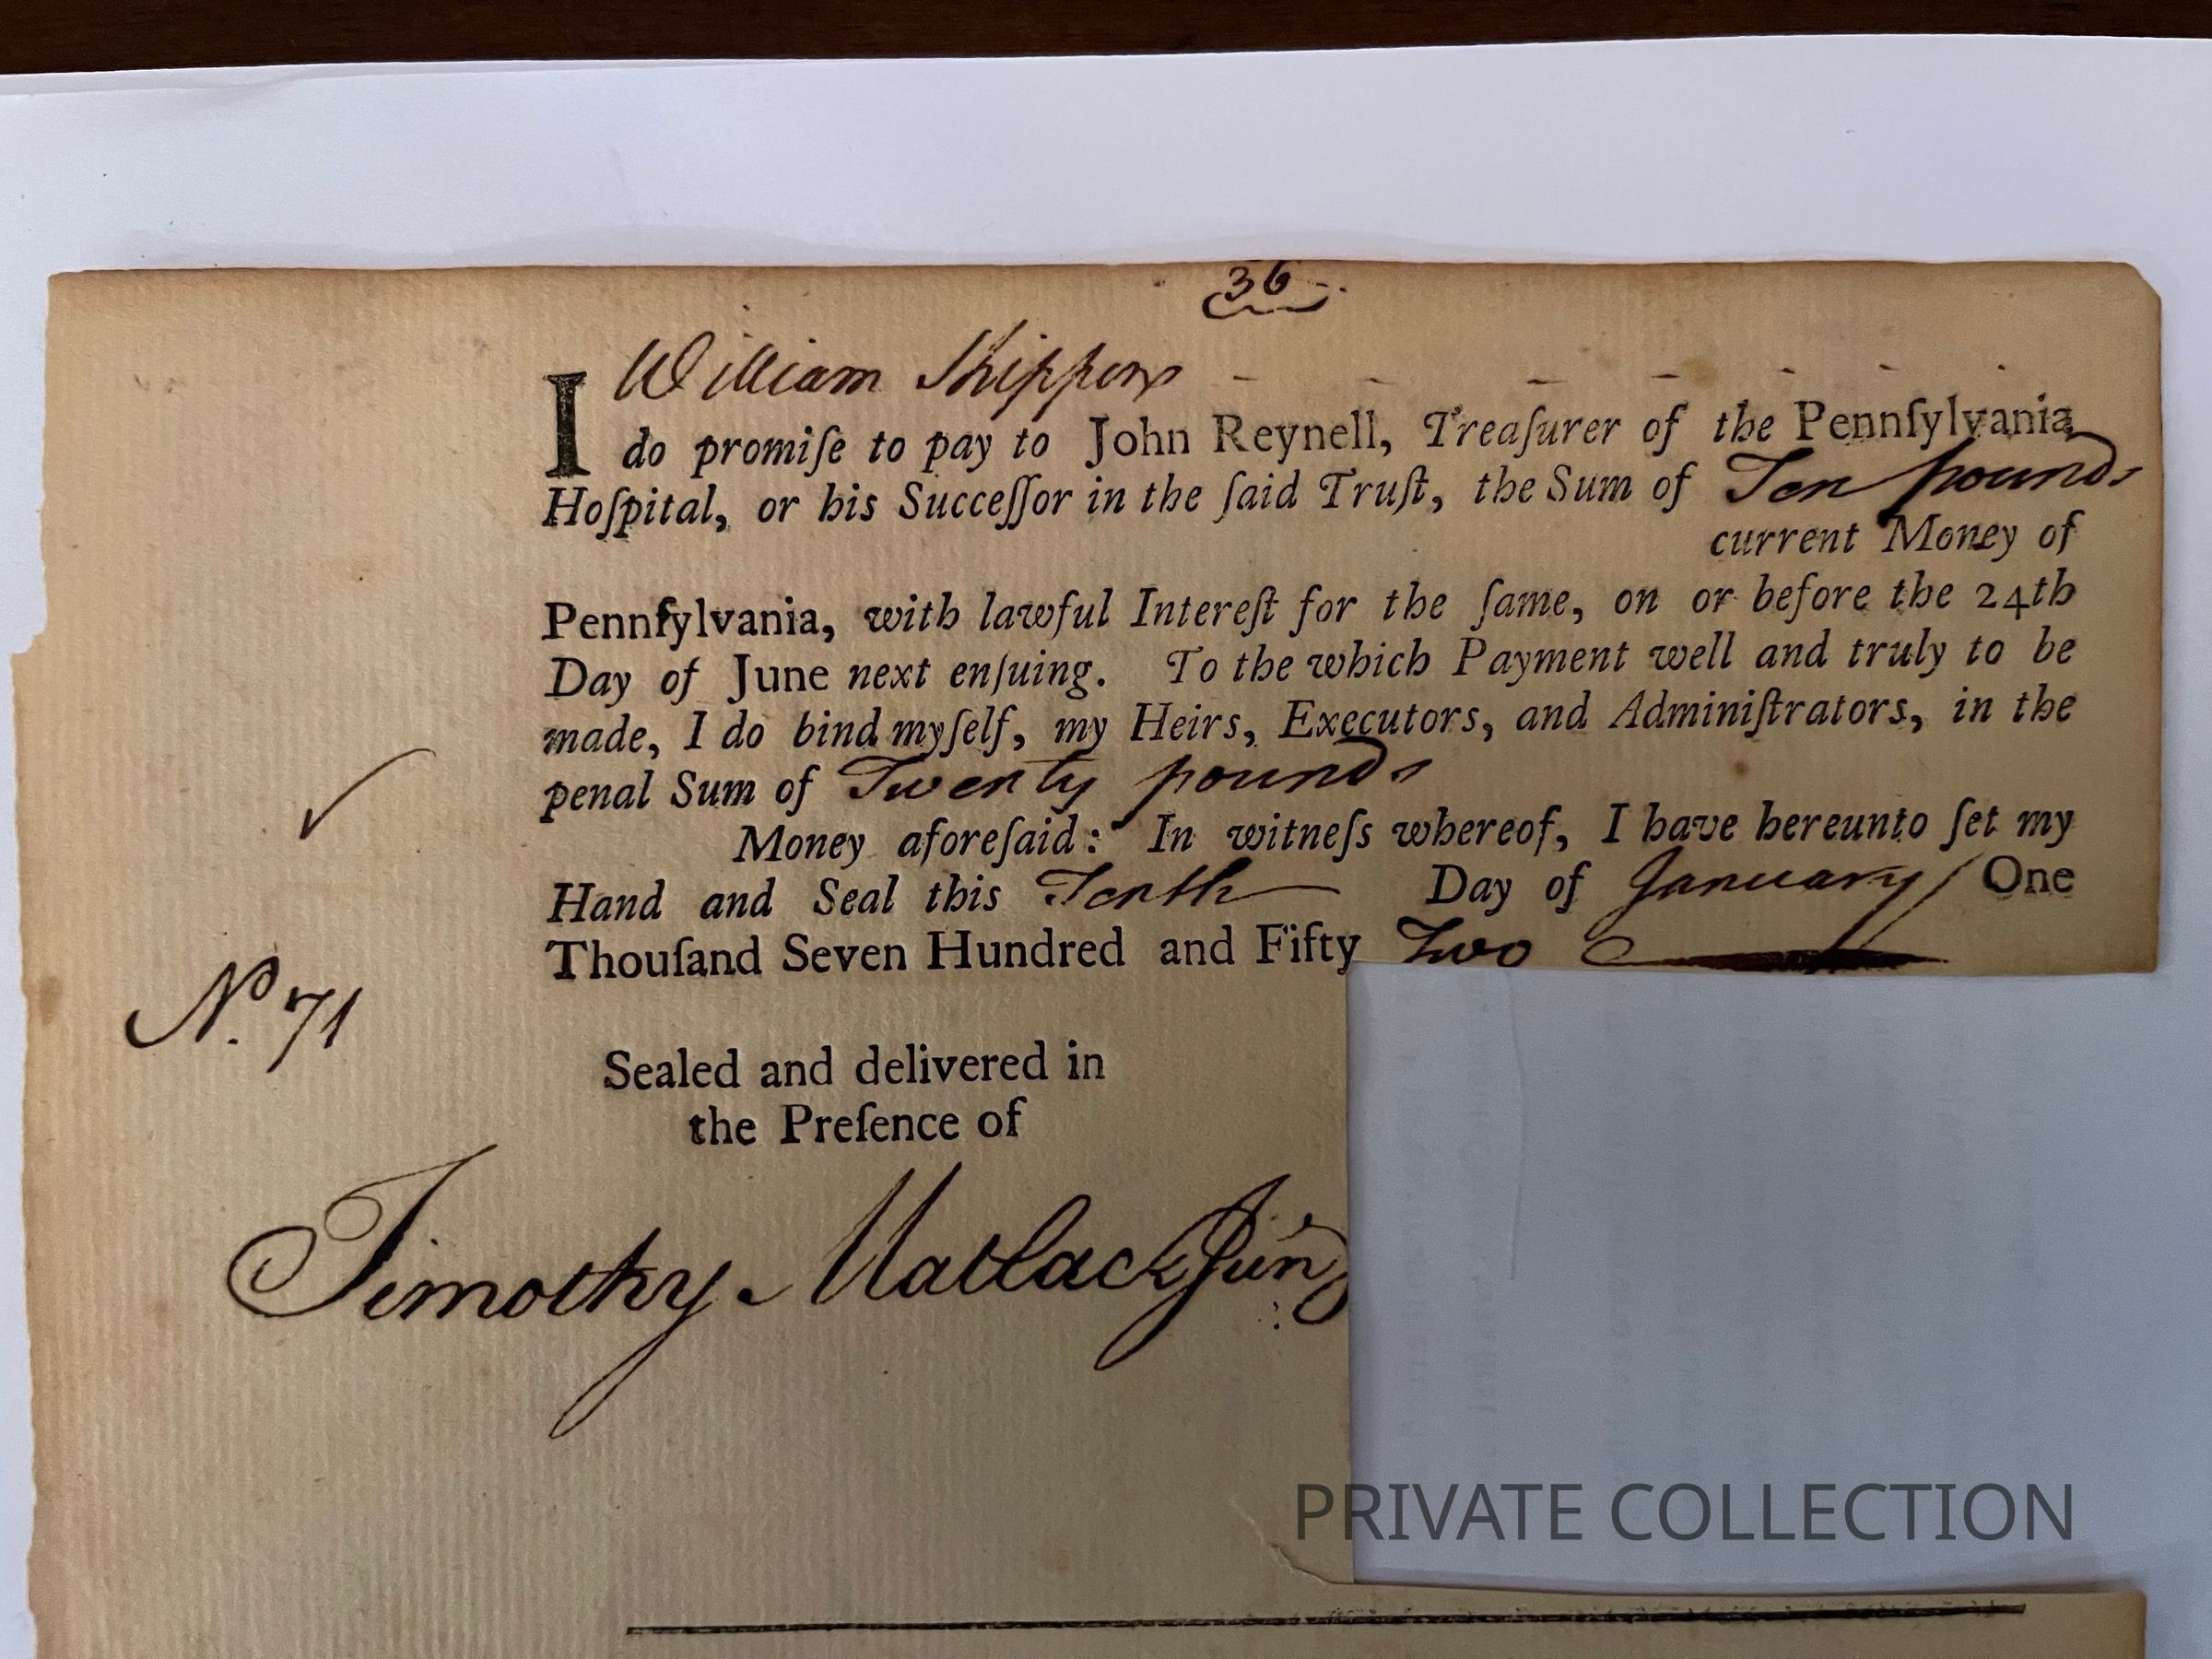 36
William Shippen
I do promiſe to pay to John Reynell, Treaſurer of the Pennſylvania
Hoſpital, or his Succeſſor in the ſaid Truſt, the Sum of Ten pounds
current Money of
Pennſylvania, with lawful Intereſt for the ſame, on or before the 24th
Day of June next enſuing. To the which Payment well and truly to be
made, I do bind myſelf, my Heirs, Executors, and Adminiſtrators, in the
penal Sum of Twenty pounds
Money aforeſaid: In witneſs whereof, I have hereunto ſet my
Hand and Seal this Tenth Day of January One
Thouſand Seven Hundred and Fifty Two
No. 71
Sealed and delivered in
the Preſence of
Timothy Matlack Junr
PRIVATE COLLECTION